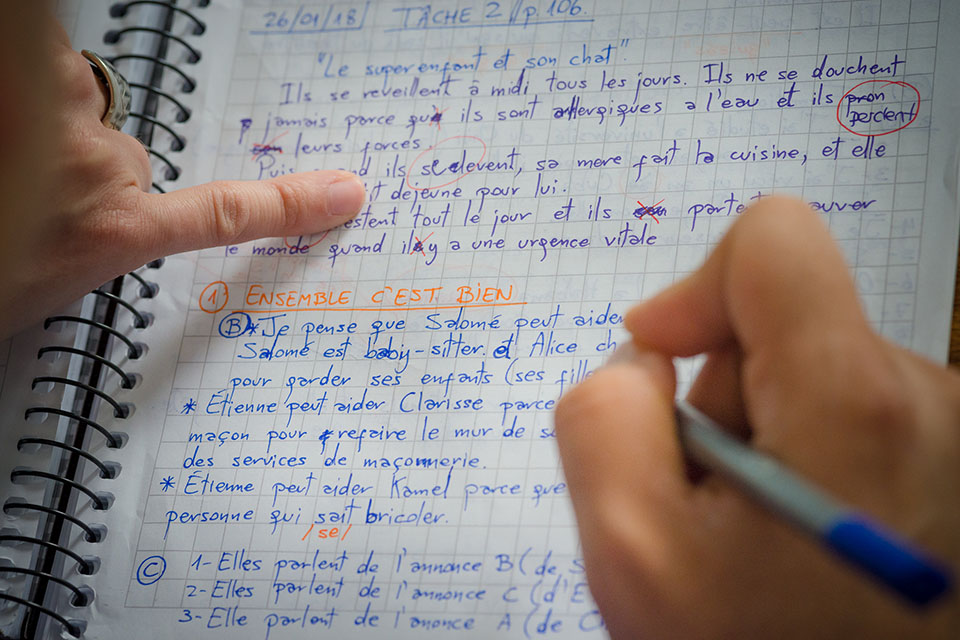 26/01/18/ TÂCHE 2 / p. 106.
"Le superenfant et son chat"
Ils se reveillent à midi tous les jours. Ils ne se douchent
jamais parce qu ils sont allergiques a l'eau et ils
perdent
leurs forces.
ils se levent, sa mere fait la cuisine, et elle
dejeune pour lui.
tout le jour et ils
le monde quand il y a une urgence vitale
1 ENSEMBLE C'EST BIEN
B * Je pense que Salomé peut aider
Salomé est baby-sitter. et Alice
pour garder ses enfants (ses
* Étienne peut aider Clarisse parce
maçon pour refaire le mur de
des services de maçonnerie.
* Étienne peut aider Kamel parce que
personne qui sait bricoler.
/se/
C 1- Elles parlent de l'annonce B (de
2- Elles parlent de l'annonce C (d'E
3- Elle parlent de l'anonce A (de